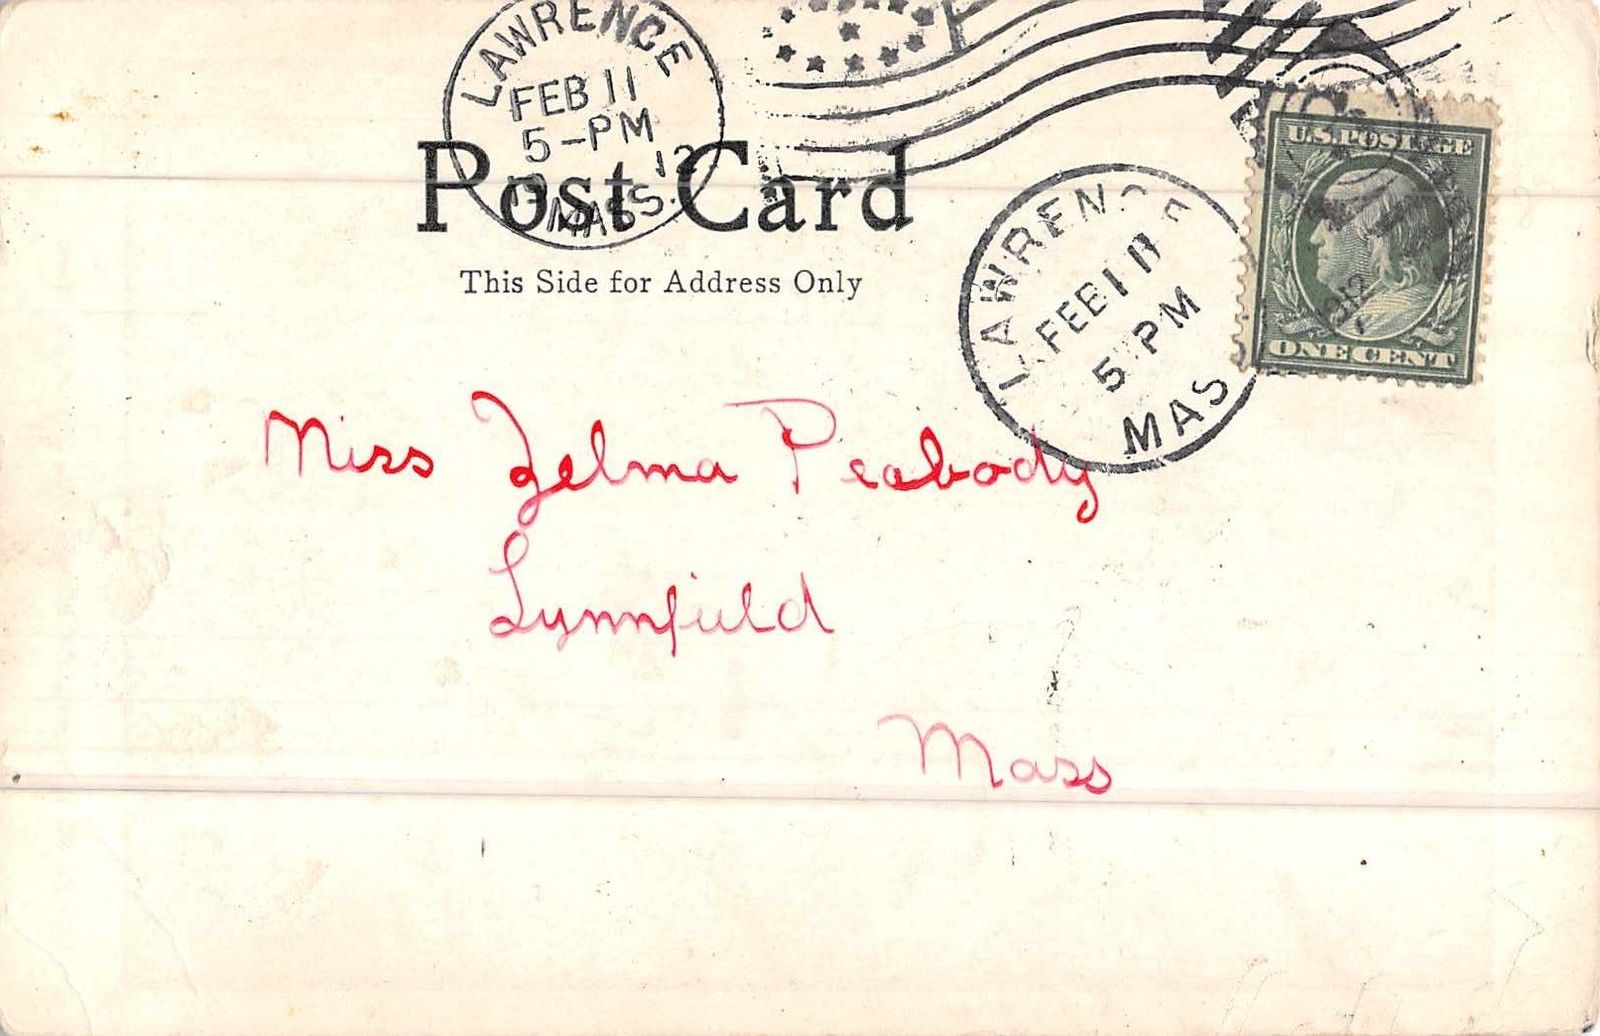 LAWRENCE
FEB 11
5-PM
'12
MASS.
Post Card
This Side for Address Only
LAWRENCE
FEB 11
5 PM
MAS
1912
U.S. POSTAGE
ONE CENT
Miss Zelma Peabody
Lynnfield
Mass